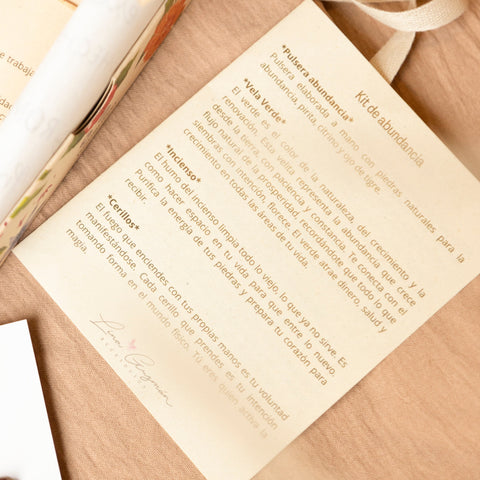 Kit de abundancia
*Pulsera abundancia*
Pulsera elaborada a mano con piedras naturales para la
abundancia, pirita, citrino y ojo de tigre.
*Vela Verde*
El verde es el color de la naturaleza, del crecimiento y la
renovación. Esta vela representa la abundancia que crece
desde la tierra, con paciencia y constancia. Te conecta con el
flujo natural de la prosperidad, recordándote que todo lo que
siembras con intención, florece. El verde atrae dinero, salud y
crecimiento en todas las áreas de tu vida.
*Incienso*
El humo del incienso limpia todo lo viejo, lo que ya no sirve. Es
como hacer espacio en tu vida para que entre lo nuevo.
Purifica la energía de tus piedras y prepara tu corazón para
recibir.
*Cerillos*
El fuego que enciendes con tus propias manos es tu voluntad
manifestándose. Cada cerillo que prendes es tu intención
tomando forma en el mundo físico. Tú eres quien activa la
magia.
de trabaja